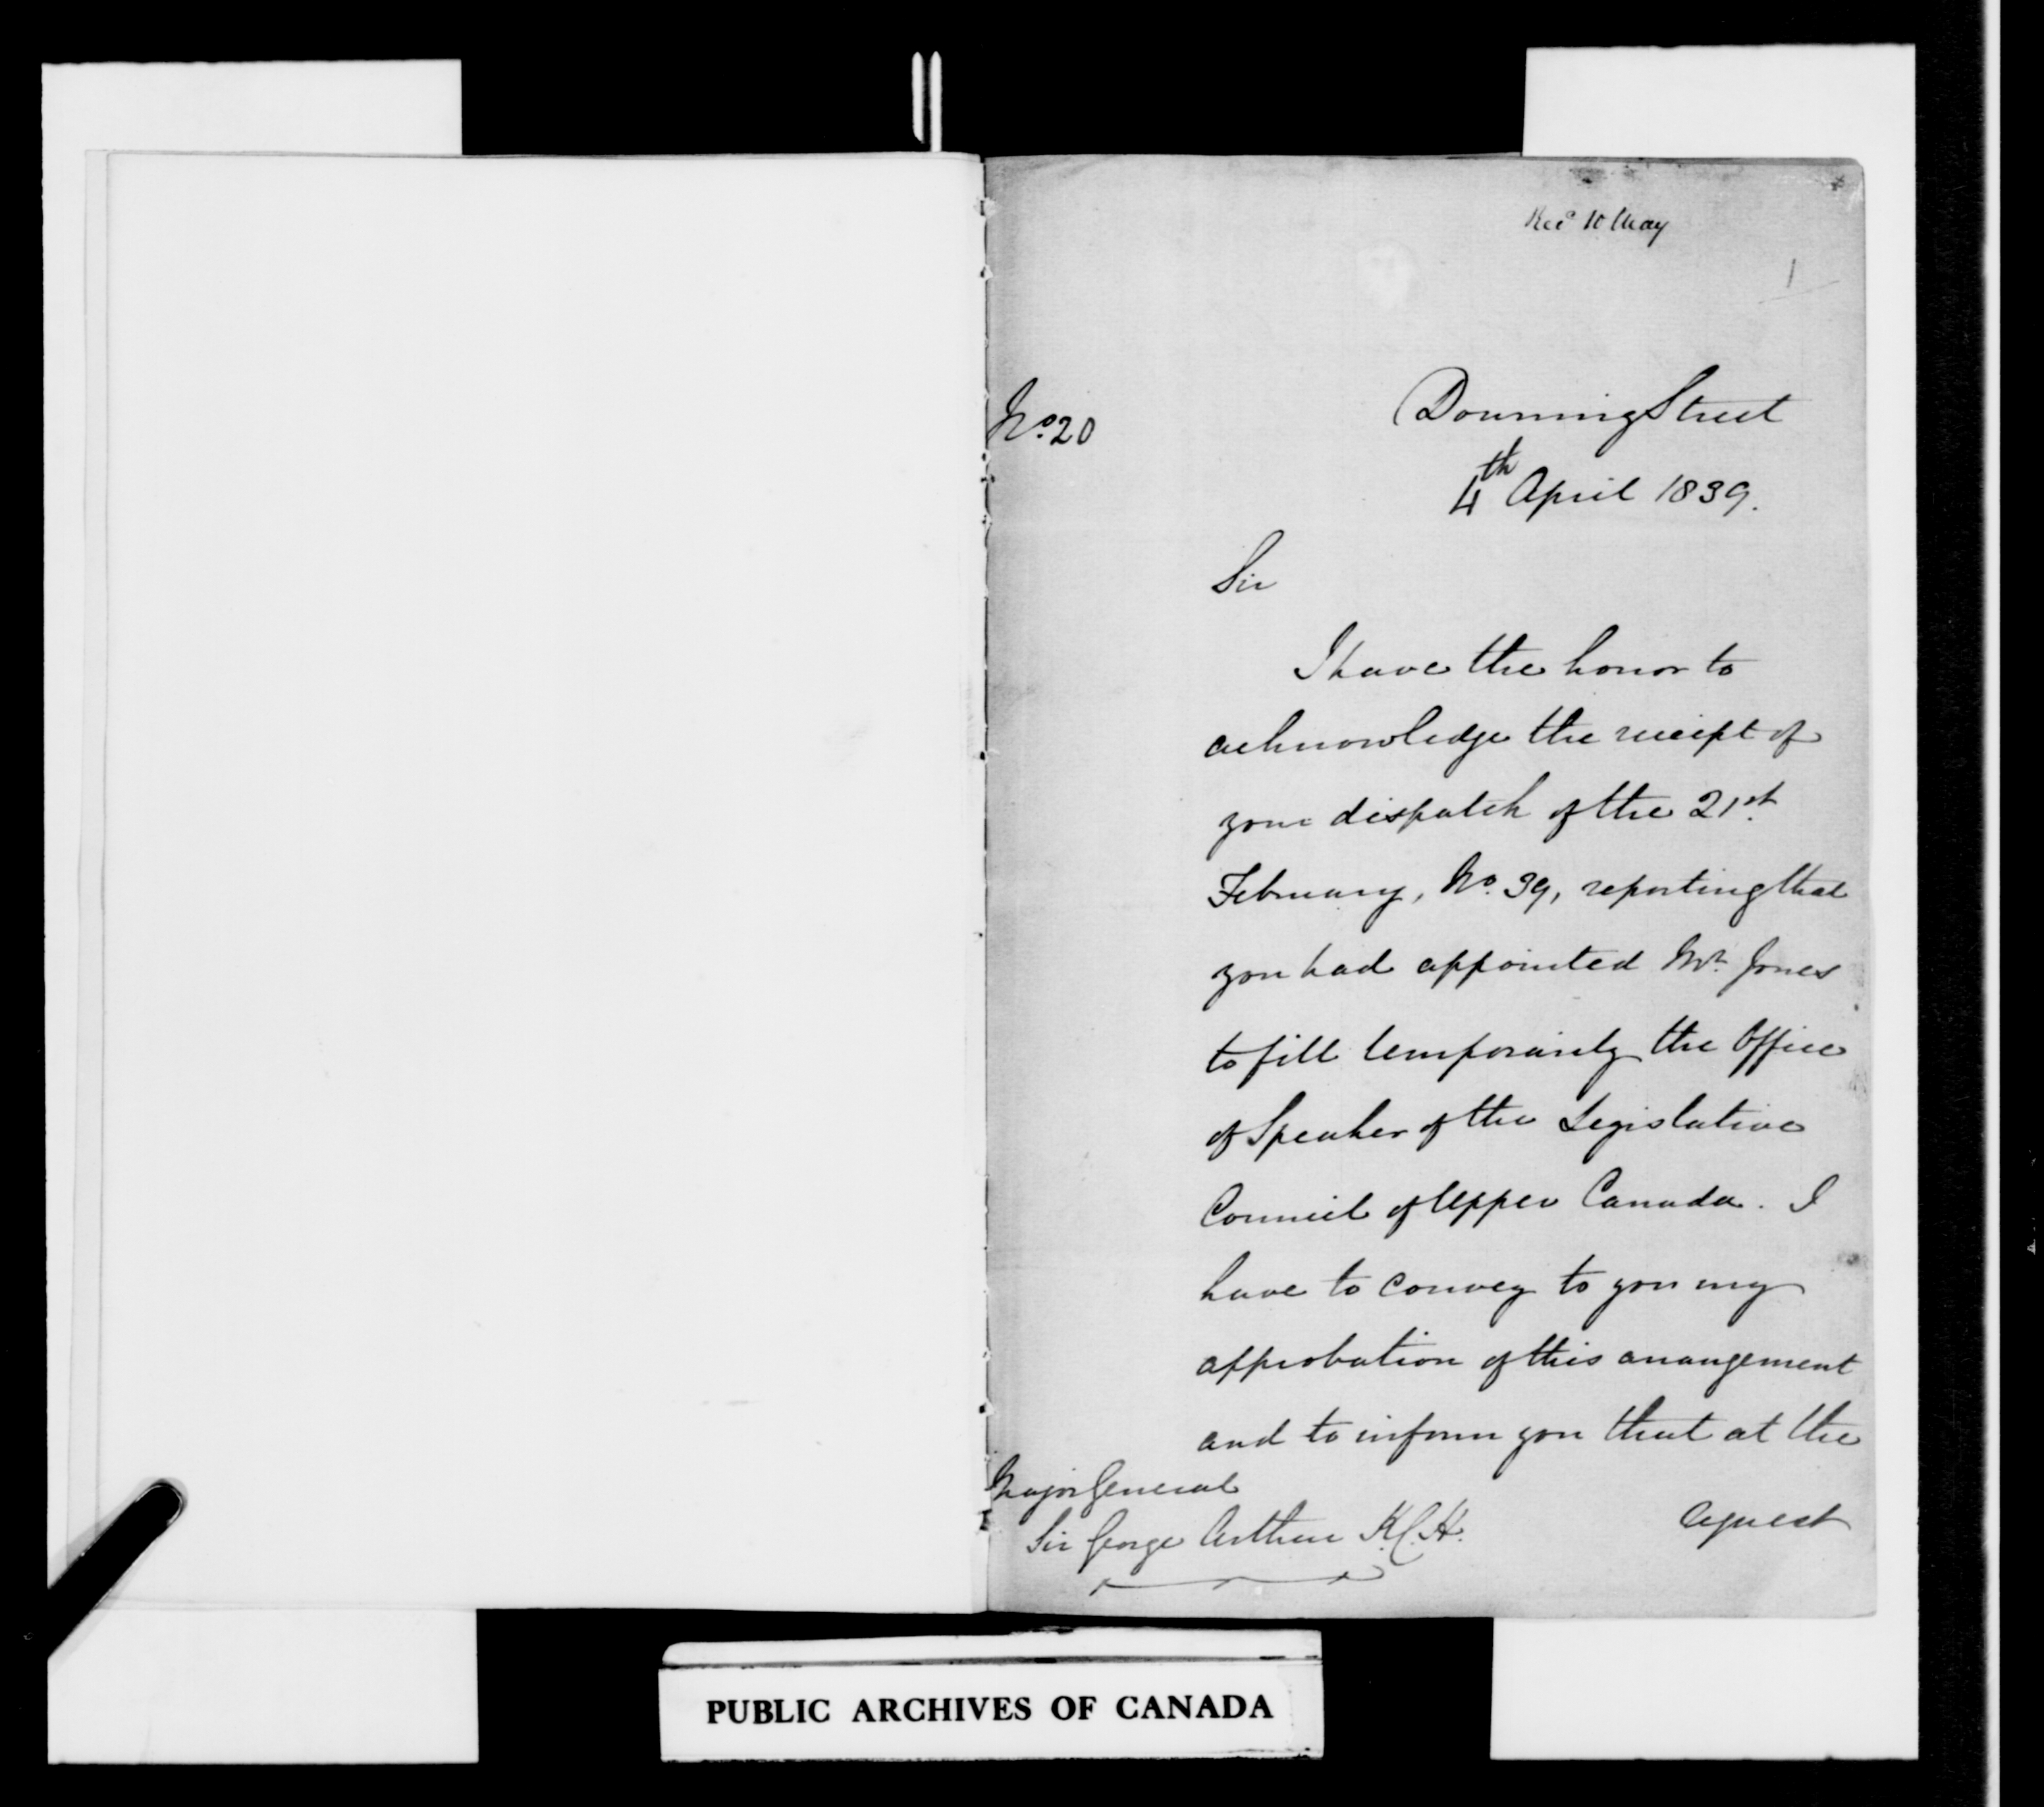 Rec^d 10 May
1
No. 20
Downing Street
4th April 1839.
Sir
I have the honor to
acknowledge the receipt of
your dispatch of the 21st
February, No. 39, reporting that
you had appointed Mr. Jones
to fill temporarily the Office
of Speaker of the Legislative
Council of Upper Canada. I
have to convey to you my
approbation of this arrangement
and to inform you that at the
Major General
Sir George Arthur K.C.H.
request
PUBLIC ARCHIVES OF CANADA